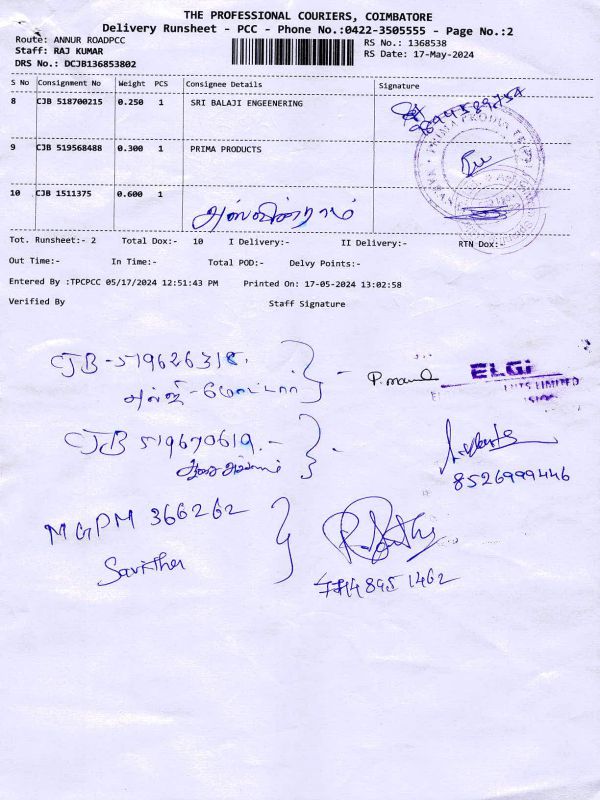 THE PROFESSIONAL COURIERS, COIMBATORE
Delivery Runsheet - PCC - Phone No.:0422-3505555 - Page No.:2
Route: ANNUR ROADPCC
Staff: RAJ KUMAR
DRS No.: DCJB136853802
RS No.: 1368538
RS Date: 17-May-2024
S No Consignment No Weight PCS Consignee Details Signature
8 CJB 518700215 0.250 1 SRI BALAJI ENGEENERING
9 CJB 519568488 0.300 1 PRIMA PRODUCTS
10 CJB 1511375 0.600 1
Tot. Runsheet:- 2 Total Dox:- 10 I Delivery:- II Delivery:- RTN Dox:-
Out Time:- In Time:- Total POD:- Delvy Points:-
Entered By :TPCPCC 05/17/2024 12:51:43 PM Printed On: 17-05-2024 13:02:58
Verified By Staff Signature
CJB - 519626318.
ELGi
LIMITED
CJB 519670619.-
8526999446
MGPM 366262
Savitha